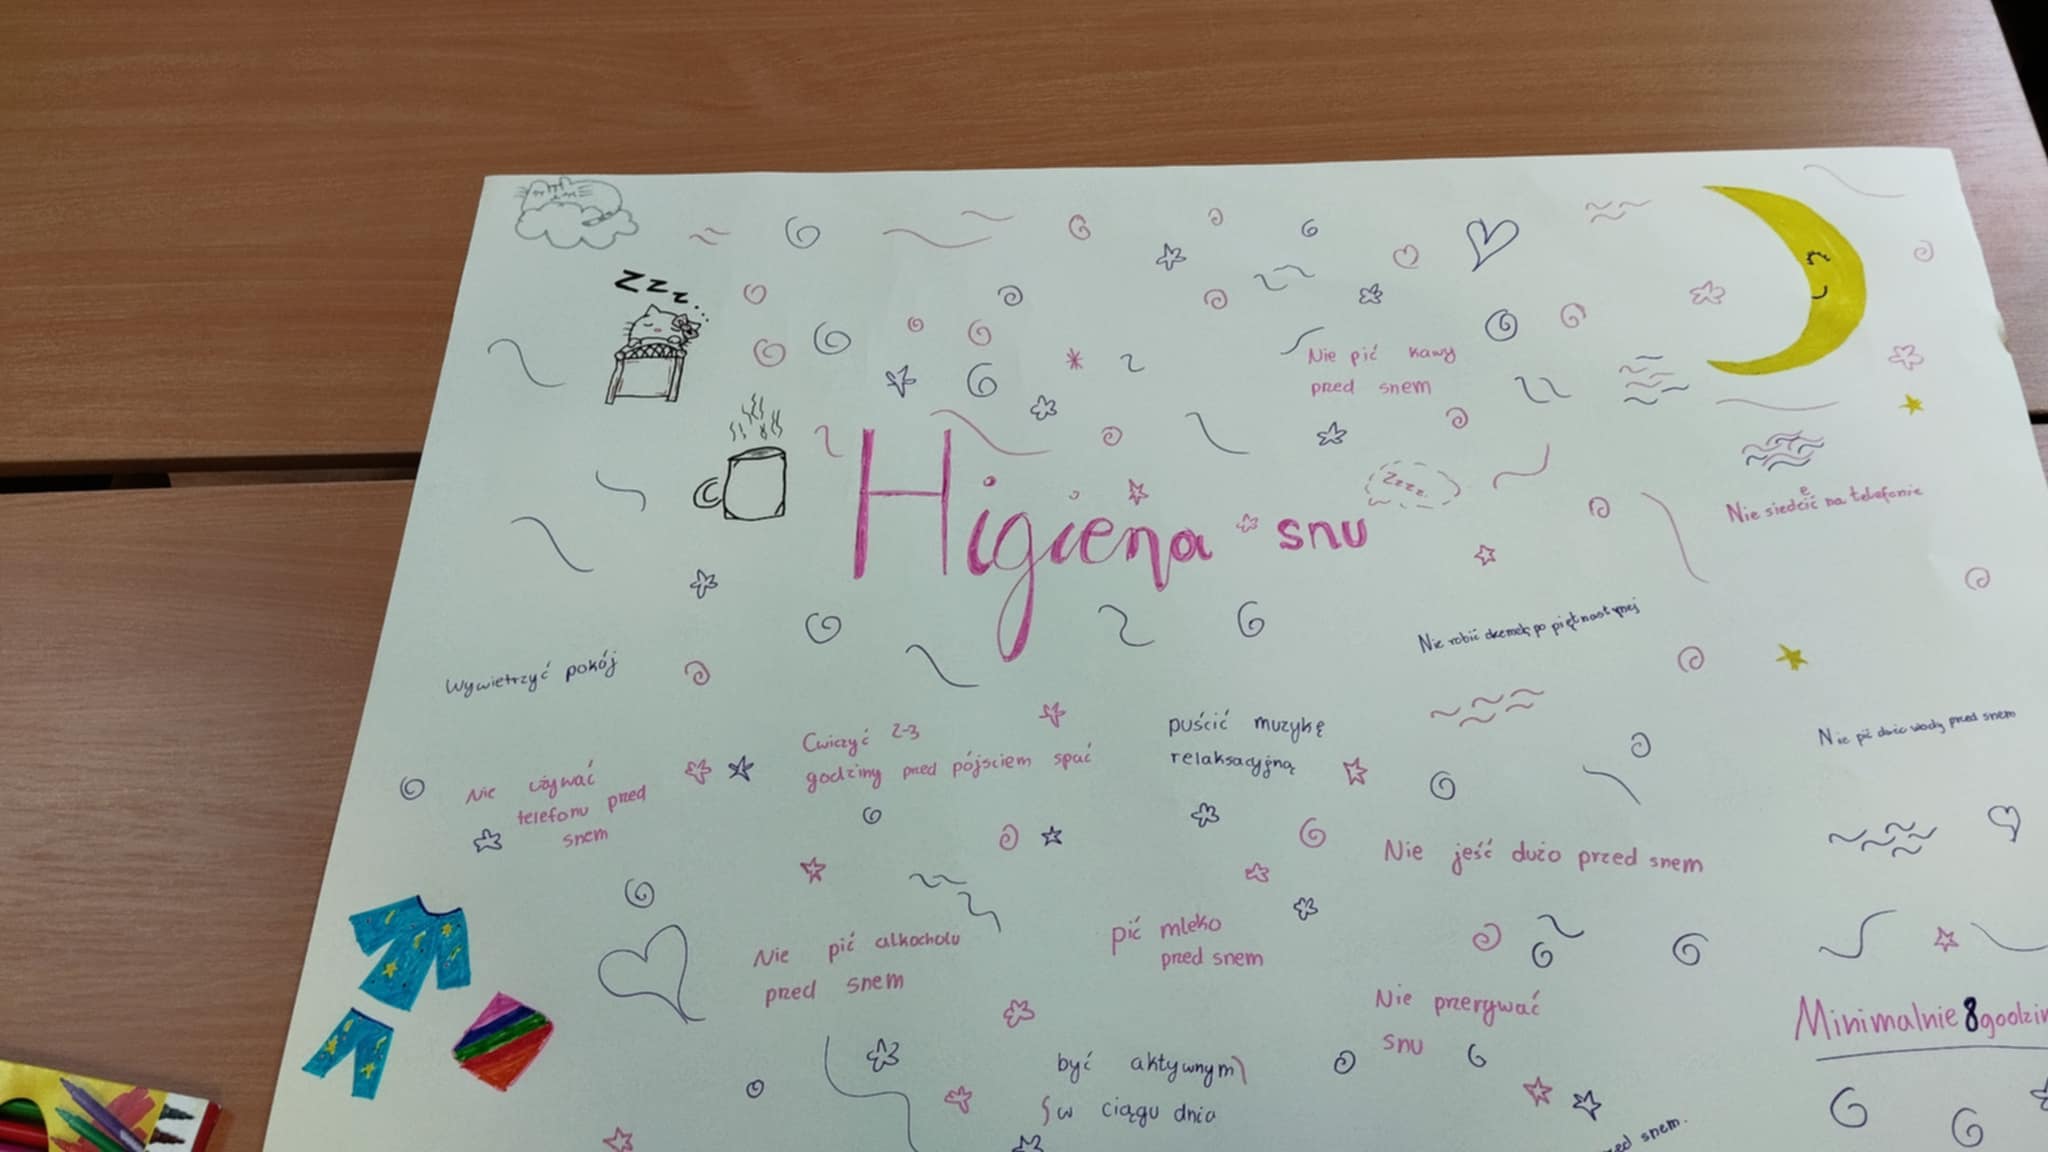 Zzz...
Nie pić kawy
przed snem
Higiena snu
Zzzz
Nie siedzieć na telefonie
Nie robić drzemek po piętnastej
Wywietrzyć pokój
Ćwiczyć 2-3
godziny przed pójściem spać
puścić muzykę
relaksacyjną
Nie pić dużo wody przed snem
Nie używać
telefonu przed
snem
Nie jeść dużo przed snem
Nie pić alkocholu
przed snem
pić mleko
przed snem
Nie przerywać
snu
Minimalnie 8
być aktywnym
w ciągu dnia
snem.